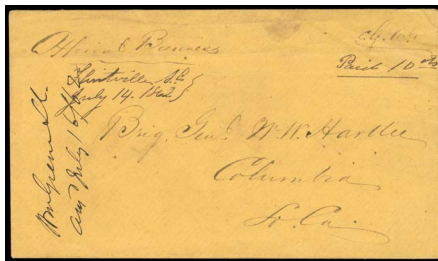 Official Business
Paid 10 cts
Clintville S.C.
July 14. 1862
Brig. Genl. W. W. Harllee
Columbia
So. Ca.
July 16